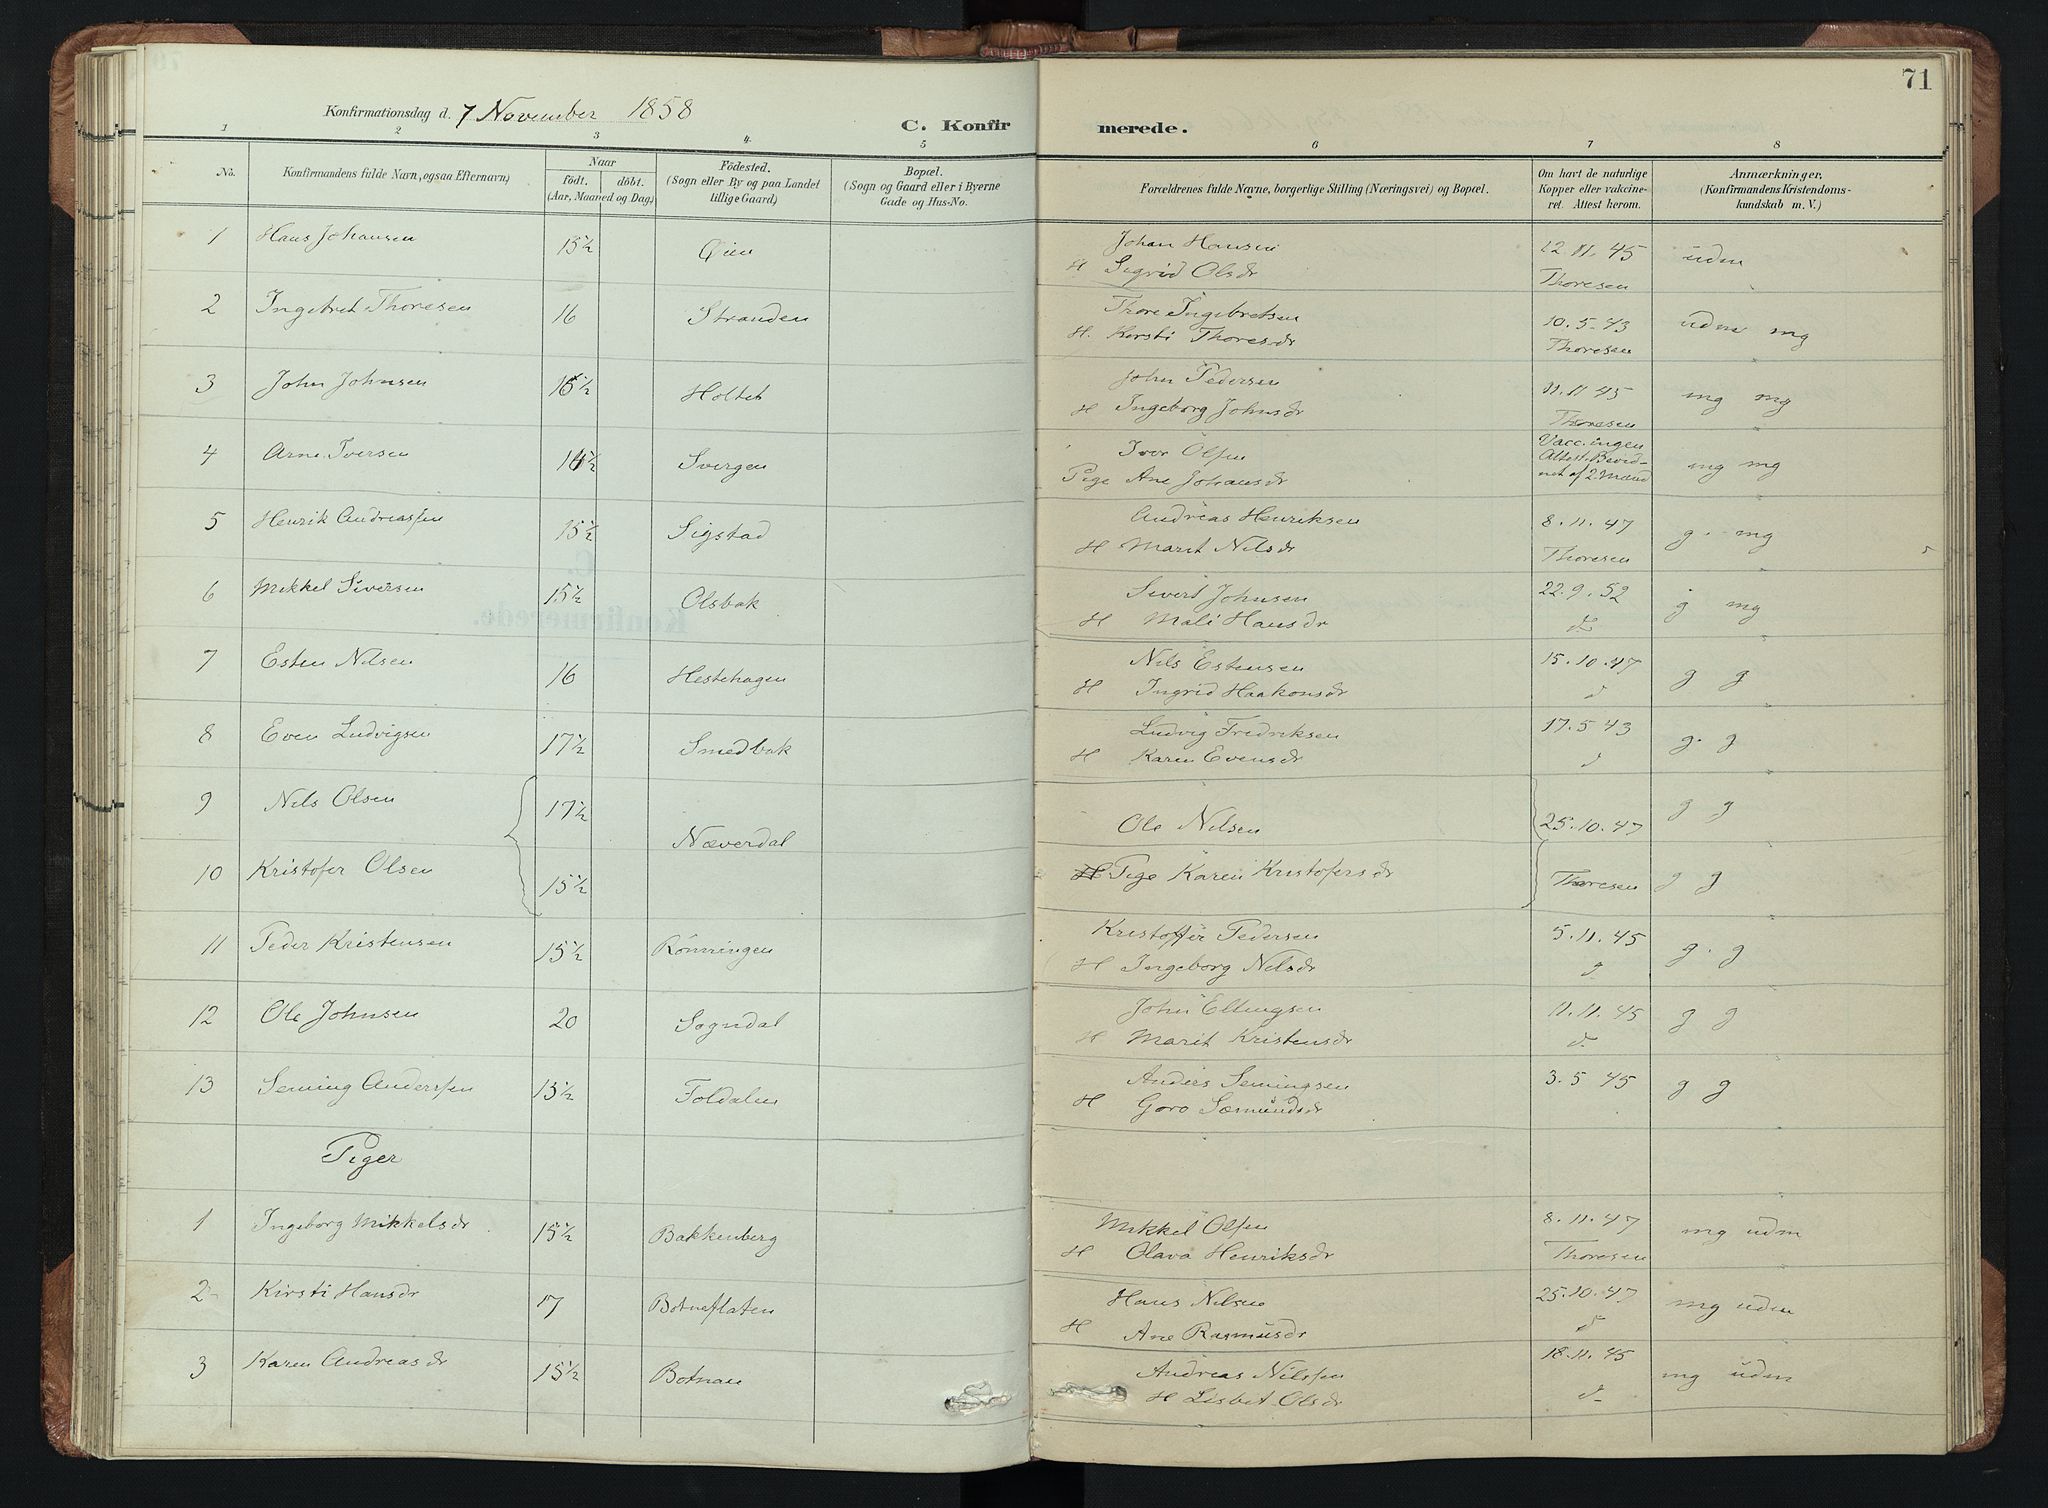 71
Konfirmationsdag d. 7 November 1858
C. Konfirmerede.
1 2 3 4 5 6 7 8
No.
Konfirmandens fulde Navn, ogsaa Efternavn,
Naar
født. døbt.
(Aar, Maaned og Dag.)
Fødested.
(Sogn eller By og paa Landet
tillige Gaard)
Bopæl.
(Sogn og Gaard eller i Byerne
Gade og Hus-No.
Forældrenes fulde Navne, borgerlige Stilling (Næringsvei) og Bopæl.
Om havt de naturlige
Kopper eller vakcine-
ret. Attest herom.
Anmærkninger,
(Konfirmandens Kristendoms-
kundskab m. V.)
1 Hans Johansen 15½ Øien Johan Hansen 12.11.45 udm
H Sigrid Olsdr Thoresen
2 Ingebret Thoresen 16 Stranden Thore Ingebretsen 10.5.43 udm mg
H. Kersti Thoresdr Thoresen
3 John Johnsen 16½ Holtet John Pedersen 11.11 45 mg mg
H Ingeborg Johnsdr Thoresen
4 Arne Iversen 14½ Svergen Iver Olsen Vacc. ingen
Attest. Bevid-
Pige Ane Johansdr net af 2 Mænd mg mg
5 Henrik Andreassen 15½ Sigstad Andreas Henriksen 8.11.47 g. mg
H Marit Nilsdr Thoresen
6 Mikkel Siversen 15½ Olsbak Sivert Johnsen 22.9.52 g mg
H Mali Hansdr d
7 Esten Nilsen 16 Hestehagen Nils Estensen 15.10.47 g g
H Ingrid Haakonsdr d
8 Even Ludvigsen 17½ Smedbak Ludvig Fredriksen 17.5 43 g. g
H Karen Evensdr d
9 Nils Olsen 17½ Næverdal Ole Nilsen 25.10.47 g g
10 Kristofer Olsen 15½ H Pige Karen Kristofersdr Thoresen g g
11 Peder Kristensen 15½ Rönningen Kristoffer Pedersen 5.11.45 g. g
H Ingeborg Nilsdr d
12 Ole Johnsen 20 Sogndal John Ellingsen 11.11.45 g g
H Marit Kristensdr d
13 Seming Anderssen 15½ Foldalen Anders Semingsen 3.5 45 g g
H Goro Sæmundsdr
Piger
1 Ingeborg Mikkelsdr 15½ Bakkenberg Mikkel Olsen 8.11.47 mg udm
H Olava Henriksdr Thoresen
2 Kirsti Hansdr 17 Botneflaten Hans Nilsen 25.10.47 mg udm
H Ane Rasmusdr d
3 Karen Andreasdr 15½ Botnan Andreas Nilssen 18.11.45 mg udm
H Lisbet Olsdr d